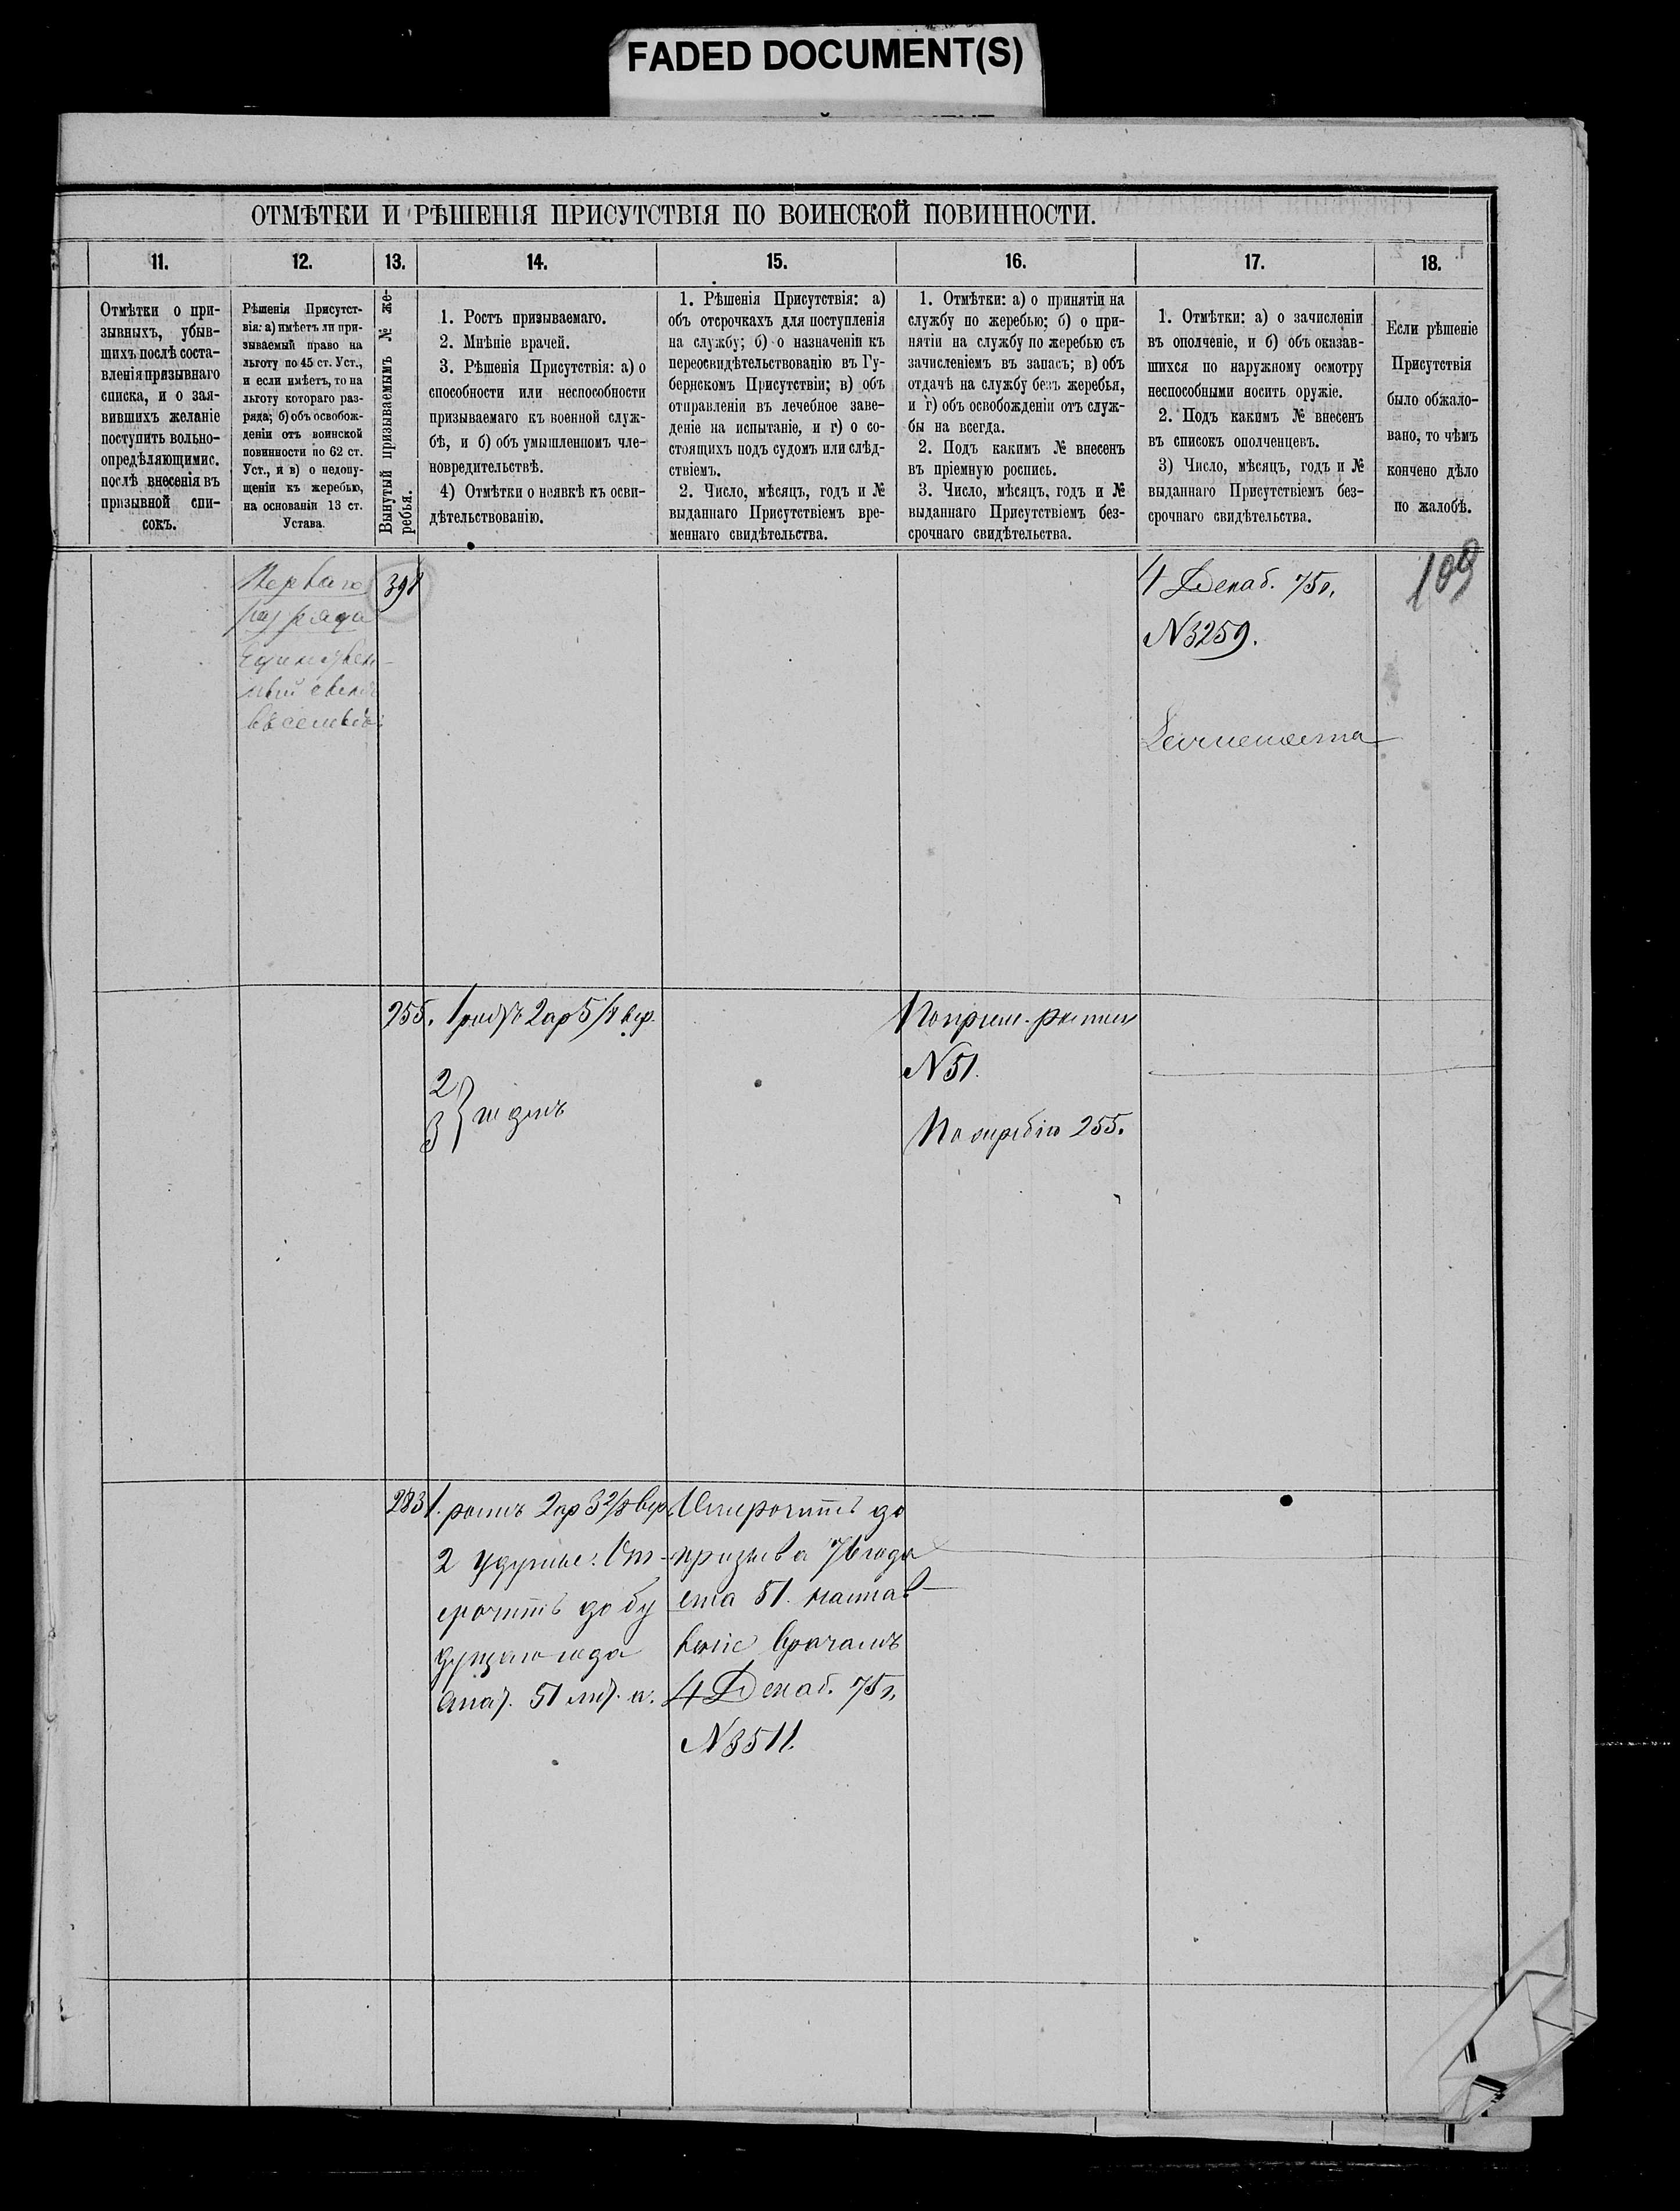 FADED DOCUMENT(S)
ОТМѢТКИ И РѢШЕНІЯ ПРИСУТСТВІЯ ПО ВОИНСКОЙ ПОВИННОСТИ.
11.
12.
13.
14.
15.
16.
17.
18.
Отмѣтки о при-
зывныхъ, убыв-
шихъ послѣ соста-
вленія призывнаго
списка, и о зая-
вившихъ желаніе
поступить вольно-
опредѣляющимис.
послѣ внесенія въ
призывной спи-
сокъ.
Рѣшенія Присутст-
вія: а) имѣетъ ли при-
зываемый право на
льготу по 45 ст. Уст.,
и если имѣетъ, то на
льготу котораго раз-
ряда; б) объ освобож-
деніи отъ воинской
повинности по 62 ст.
Уст., и в) о недопу-
щеніи къ жеребью,
на основаніи 13 ст.
Устава.
Вынутый призываемымъ № же-
ребья.
1. Ростъ призываемаго.
2. Мнѣніе врачей.
3. Рѣшенія Присутствія: а) о
способности или неспособности
призываемаго къ военной служ-
бѣ, и б) объ умышленномъ чле-
новредительствѣ.
4) Отмѣтки о неявкѣ къ осви-
дѣтельствованію.
1. Рѣшенія Присутствія: а)
объ отсрочкахъ для поступленія
на службу; б) о назначеніи къ
переосвидѣтельствованію въ Гу-
бернскомъ Присутствіи; в) объ
отправленіи въ лечебное заве-
деніе на испытаніе, и г) о со-
стоящихъ подъ судомъ или слѣд-
ствіемъ.
2. Число, мѣсяцъ, годъ и №
выданнаго Присутствіемъ вре-
меннаго свидѣтельства.
1. Отмѣтки: а) о принятіи на
службу по жеребью; б) о при-
нятіи на службу по жеребью съ
зачисленіемъ въ запасъ; в) объ
отдачѣ на службу безъ жеребья,
и г) объ освобожденіи отъ служ-
бы на всегда.
2. Подъ какимъ № внесенъ
въ пріемную роспись.
3. Число, мѣсяцъ, годъ и №
выданнаго Присутствіемъ без-
срочнаго свидѣтельства.
1. Отмѣтки: а) о зачисленіи
въ ополченіе, и б) объ оказав-
шихся по наружному осмотру
неспособными носить оружіе.
2. Подъ какимъ № внесенъ
въ списокъ ополченцевъ.
3) Число, мѣсяцъ, годъ и №
выданнаго Присутствіемъ без-
срочнаго свидѣтельства.
Если рѣшеніе
Присутствія
было обжало-
вано, то чѣмъ
кончено дѣло
по жалобѣ.
Перваго
разряда
Единствен-
ный
въ семьѣ
391
4 Декаб. 75 г.
N 3259.
109
255. 1 ростъ 2 ар 5/8 вер.
2
3 } годенъ
По прием. росписи
N 51.
По жребію 255.
283 1. ростъ 2 ар 3 2/8 вер.
2 Удушье. От-
срочить до бу
дущаго года
51 лит. а.
Отсрочить до
призыва 76 года
ста 51. настав
леніе врачамъ
4 Декаб. 75 г.
N 3511.